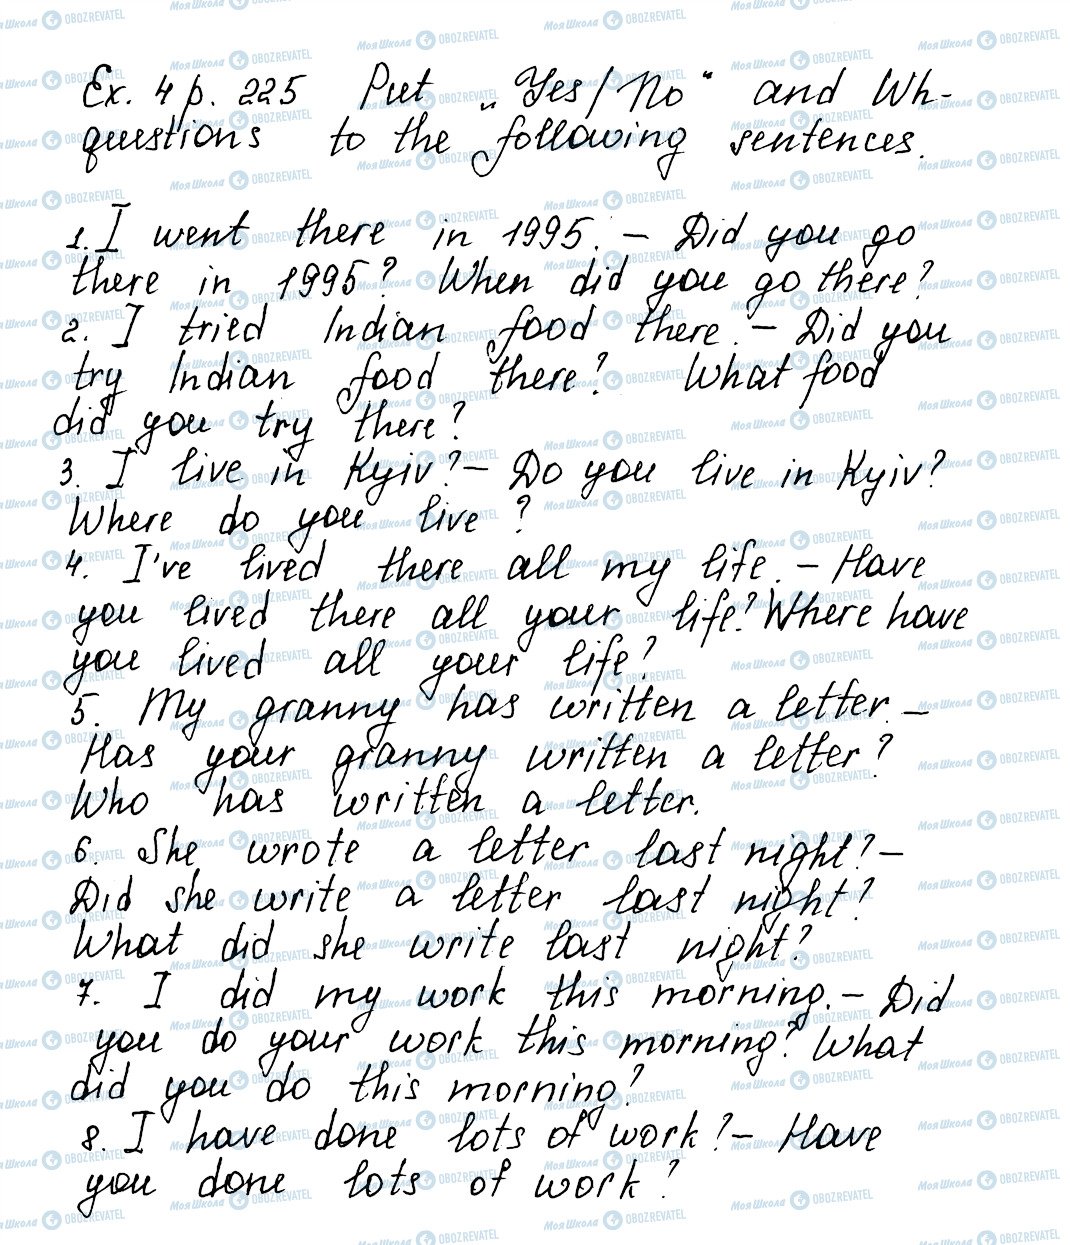 Ex. 4 p. 225 Put „Yes/No“ and Wh-
questions to the following sentences.
1. I went there in 1995. – Did you go
there in 1995? When did you go there?
2. I tried Indian food there. – Did you
try Indian food there? What food
did you try there?
3. I live in Kyiv? – Do you live in Kyiv?
Where do you live ?
4. I've lived there all my life. – Have
you lived there all your life? Where have
you lived all your life?
5. My granny has written a letter. –
Has your granny written a letter?
Who has written a letter.
6. She wrote a letter last night? –
Did she write a letter last night?
What did she write last night?
7. I did my work this morning. – Did
you do your work this morning? What
did you do this morning?
8. I have done lots of work? – Have
you done lots of work?